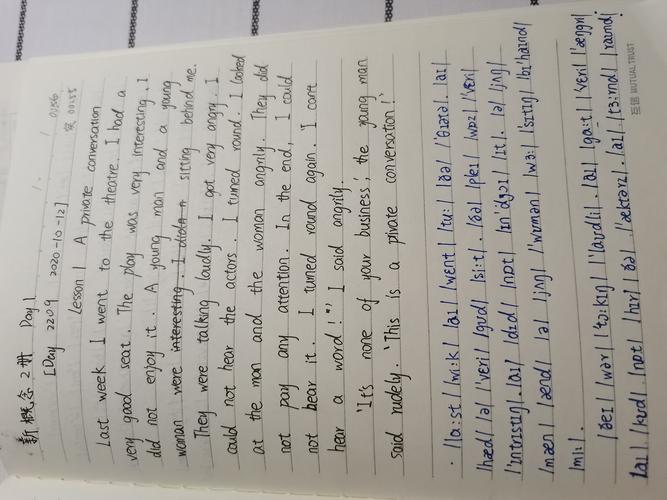 新概念2册 Day 1
[Day 2209 2020-10-12] 01:56
Lesson 1 A private conversation
Last week I went to the theatre. I had a
very good seat. The play was very interesting. I
did not enjoy it. A young man and a young
woman were interesting. I didn sitting behind me.
They were talking loudly. I got very angry. I
could not hear the actors. I turned round. I looked
at the man and the woman angrily. They did
not pay any attention. In the end, I could
not bear it. I turned round again. 'I can't
hear a word!' I said angrily.
'It's none of your business', the young man
said rudely. 'This is a private conversation!'
/lɑ:st/ /wi:k/ /aɪ/ /wɛnt/ /tu:/ /ðə/ /'θɪətə/. /aɪ/
/hæd/ /ə/ /'vɛri/ /gʊd/ /si:t/. /ðə/ /pleɪ/ /wɒz/ /'vɛri/
/'ɪntrɪstɪŋ/. /aɪ/ /dɪd/ /nɒt/ /ɪn'dʒɔɪ/ /ɪt/. /ə/ /jʌŋ/
/mæn/ /ænd/ /ə/ /jʌŋ/ /'wʊmən/ /wɜ:/ /'sɪtɪŋ/ /bɪ'haɪnd/
/mi:/.
/ðeɪ/ /wər/ /'tɔ:kɪŋ/ /'laʊdli/. /aɪ/ /gɑ:t/ /'vɛri/ /'æŋgri/
/aɪ/ /kʊd/ /nɒt/ /hɪr/ /ðə/ /'æktərz/. /aɪ/ /tɜ:rnd/ /raʊnd/.
互信 WUTUAL TRUST